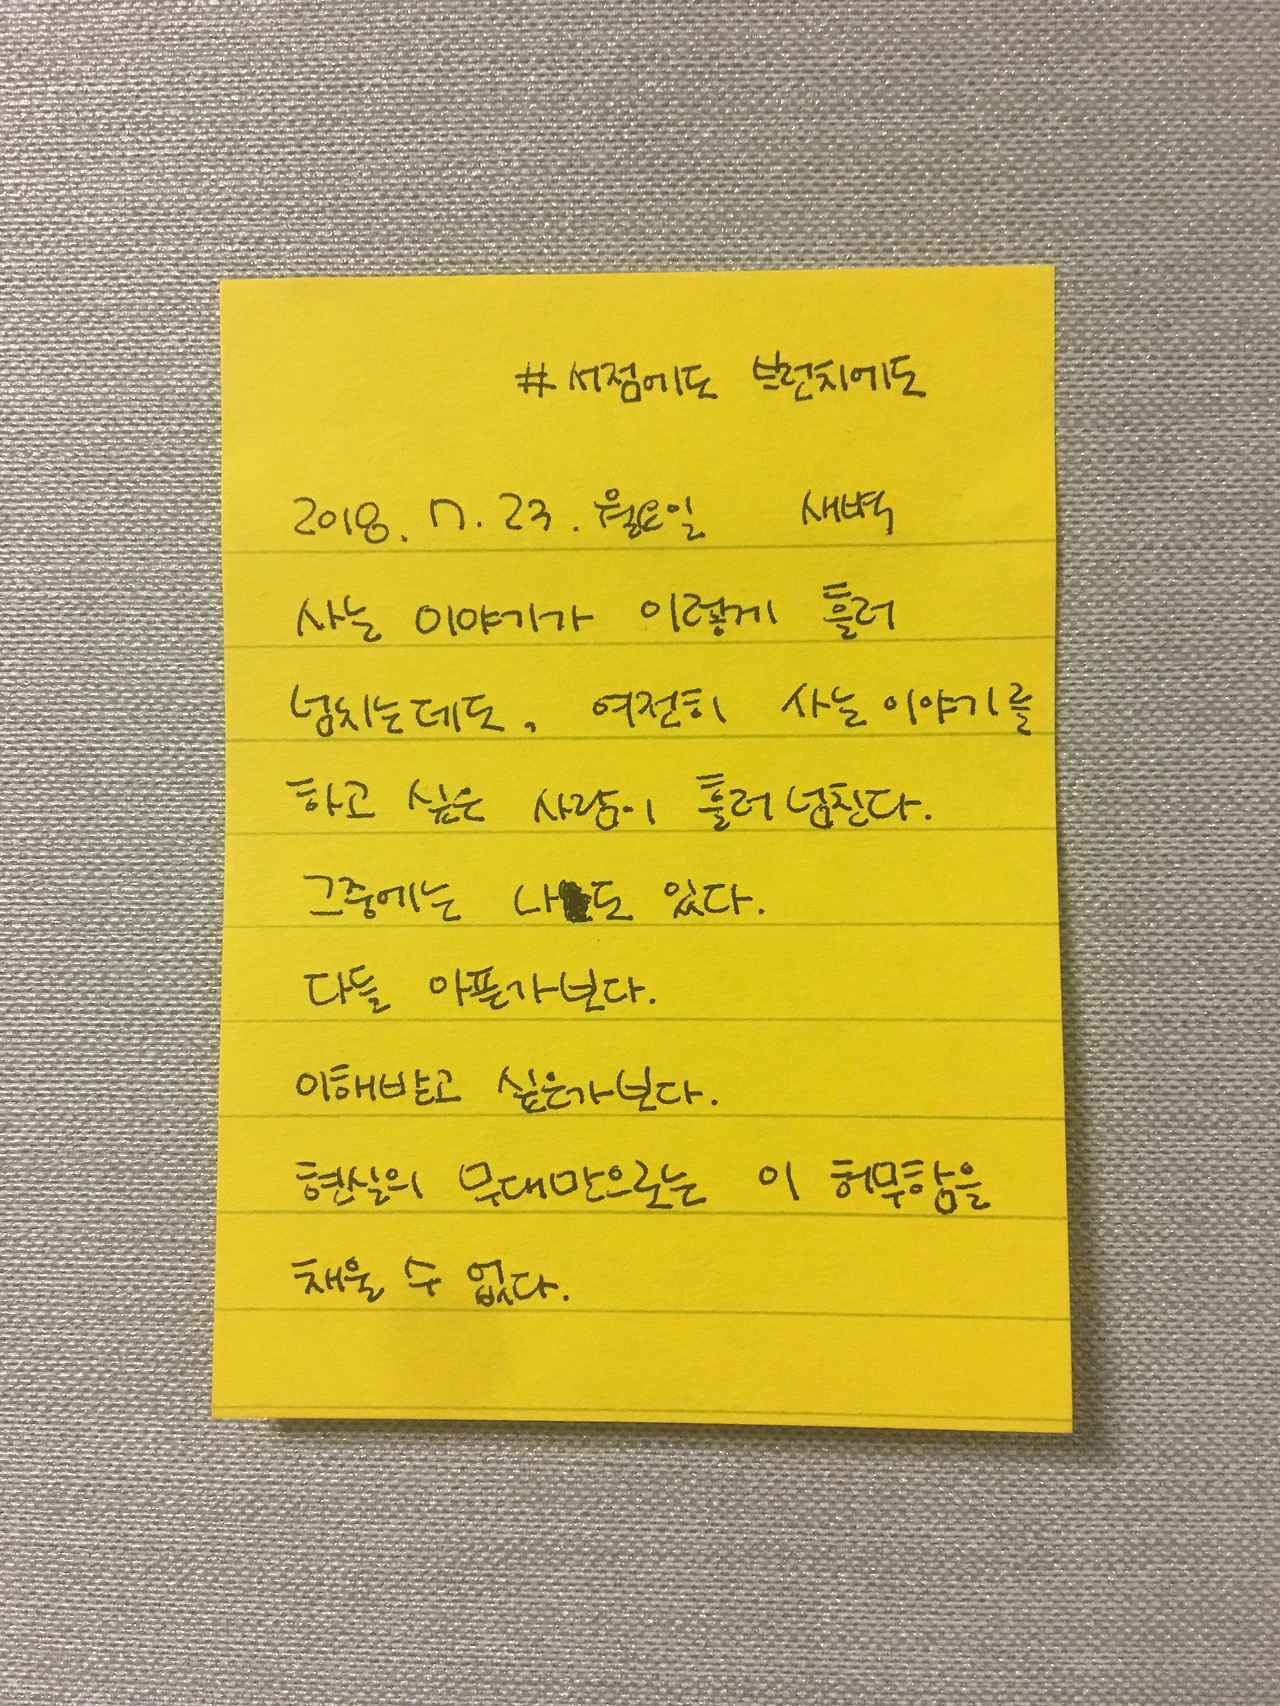 #서점에도 브런치에도
2018. 7. 23. 월요일 새벽
사는 이야기가 이렇게 흘러
넘치는데도, 여전히 사는 이야기를
하고 싶은 사람이 흘러넘친다.
그중에는 나도 있다.
다들 아픈가보다.
이해받고 싶은가보다.
현실의 무대만으로는 이 허무함을
채울 수 없다.